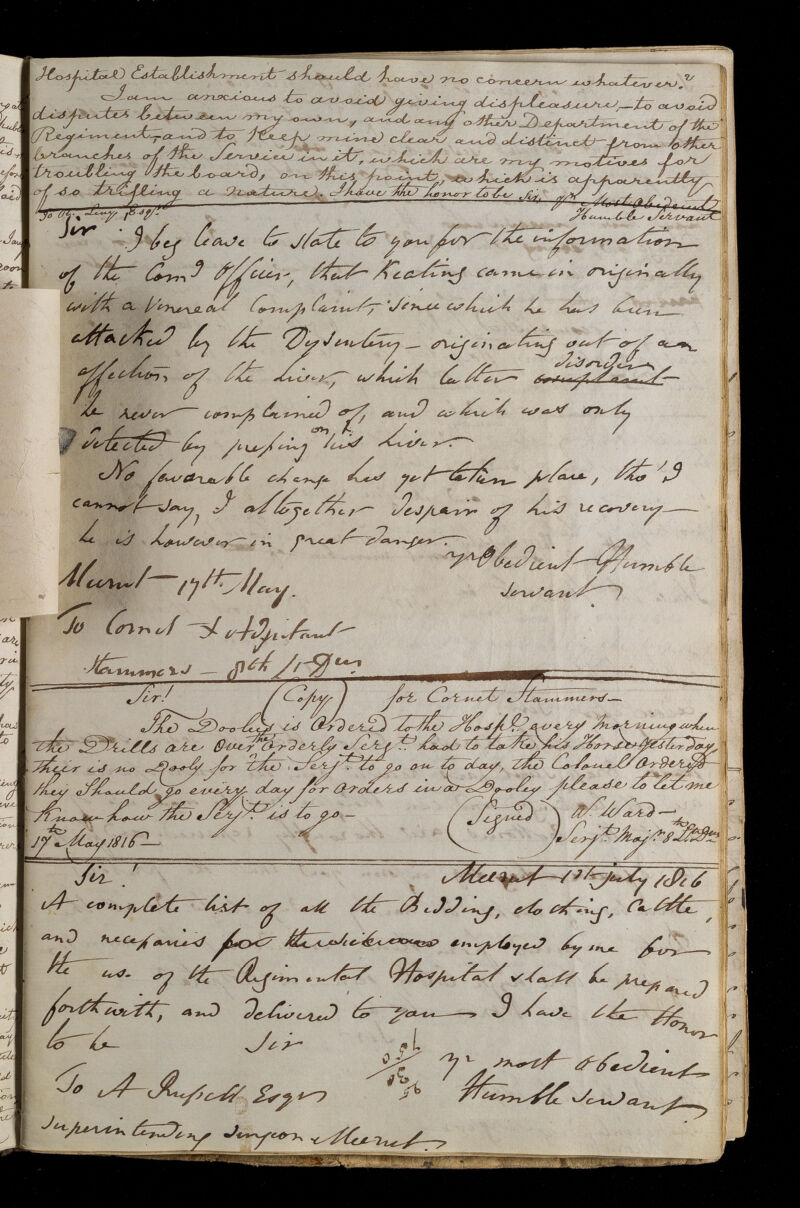 Hospital Establishment should have no concern whatever."
I am anxious to avoid giving displeasure – to avoid
disputes between my own, and any other Department of the
Regiment, and to keep mine clear and distinct from other
branches of the Service in it, which are my motives for
troubling the board, on this point, which is apparently
of so trifling a nature. I have the honor to be Sir, yr Most Obedient
Humble Servant
Sir I beg leave to state to you for the information
of the Comg Officer, that Keating came in originally
with a Venereal Complaint, since which he has been
attacked by the Dysentery – originating out of an
affection of the Liver, which latter complaint disorder
he never complained of, and which was only
detected by pressing on his Liver.
No favorable change has yet taken place, tho' I
cannot say, I altogether despair of his recovery –
he is however in great danger.
yr Obedient Humble
servant
Meerut 17th May.
To Cornet & Adjutant
Hammers – 8th Lt Dns
Sir! (Copy) for Cornet Hammers –
The Dooleys is Ordered to the Hospl every morning when
the Drills are over the Orderly Serjt had to take his Horse yesterday
their is no Dooly for the Serjt to go on to day, the Colonel Ordered
they Should go every day for Orders in a Dooley please to let me
Know how the Serjt is to go –
(Signed) W. Ward –
Serjt Majr 8th Lt Dns
17th May 1816 –
Sir! Meerut 1st july 1816
A complete list of all the Bedding, clothing, Cattle,
and necessaries employed by me for
the use of the Regimental Hospital shall be prepared
forthwith, and delivered to you – I have the Honor
to be Sir
yr most obedient
Humble servant
To A Russell Esqr
superintending surgeon Meerut.